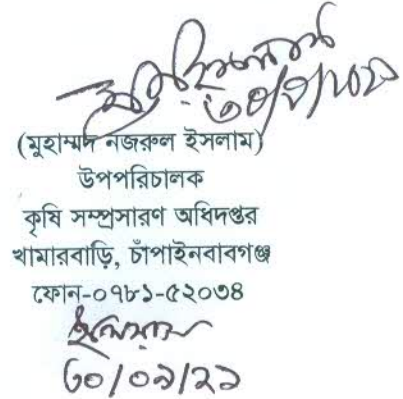 ৩০/৯/২০২১
(মুহাম্মদ নজরুল ইসলাম)
উপপরিচালক
কৃষি সম্প্রসারণ অধিদপ্তর
খামারবাড়ি, চাঁপাইনবাবগঞ্জ
ফোন-০৭৮১-৫২০৩৪
৩০/০৯/২১